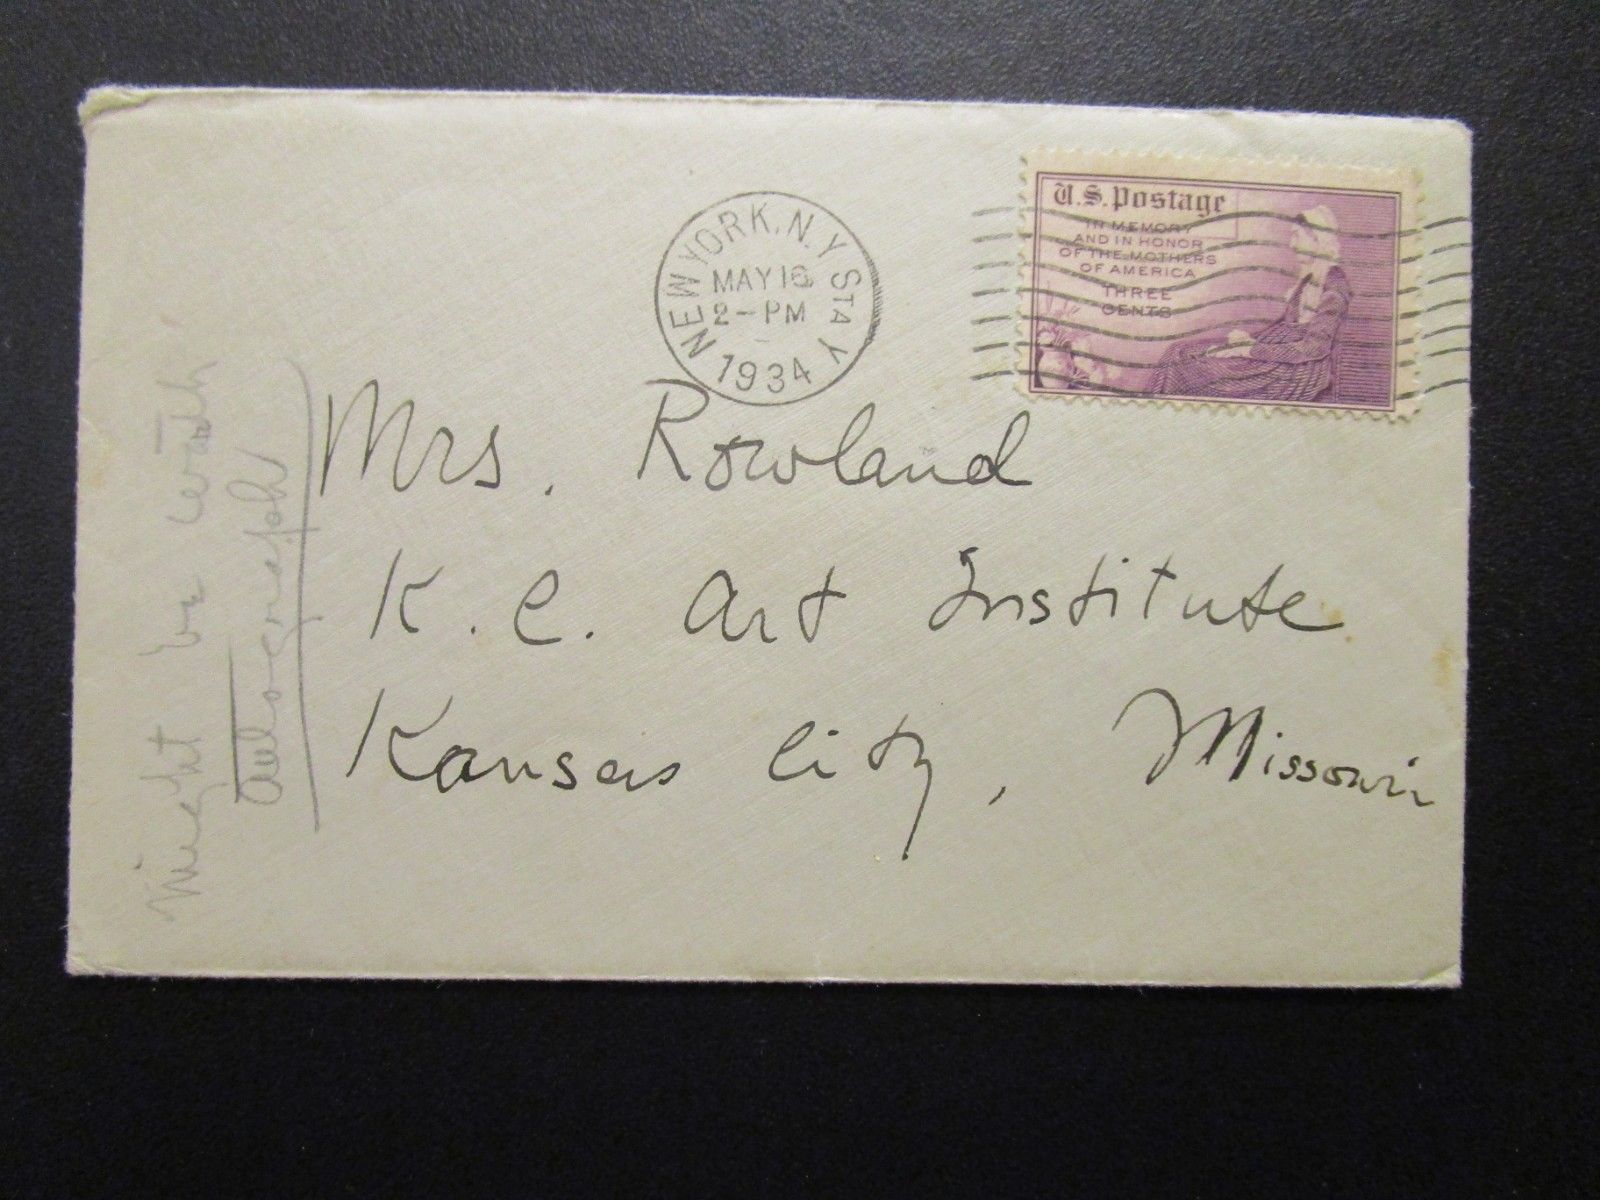 NEW YORK, N.Y. STA Y
MAY 16
2-PM
1934
U.S. Postage
IN MEMORY
AND IN HONOR
OF THE MOTHERS
OF AMERICA
THREE
CENTS
Mrs. Rowland
K. C. Art Institute
Kansas City, Missouri
might be worth
autograph